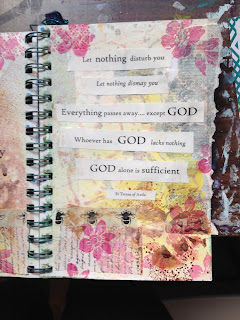 Let nothing disturb you
Let nothing dismay you
Everything passes away.... except GOD
Whoever has GOD lacks nothing
GOD alone is sufficient
St Teresa of Avila